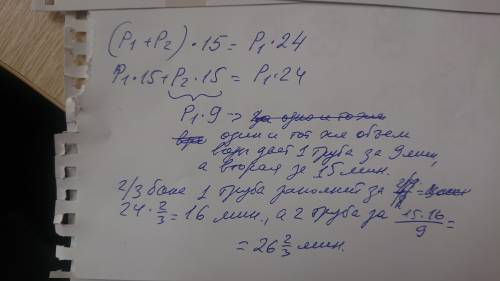 (P₁+P₂)·15=P₁·24
P₁·15+P₂·15=P₁·24
P₁·9 → за одно и то же
вре один и тот же объем
воды дает 1 труба за 9 мин,
а вторая за 15 мин.
2/3 бака 1 труба заполнит за
24·2/3=16 мин., а 2 труба за 15·16/9=
=26 2/3 мин.